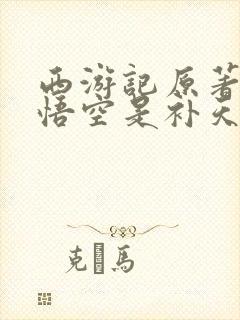 西游記原著
悟空是补天
克·馬